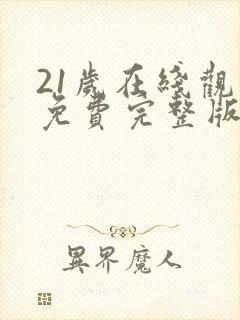 21歲在綫觀
免費完整版
異界魔人